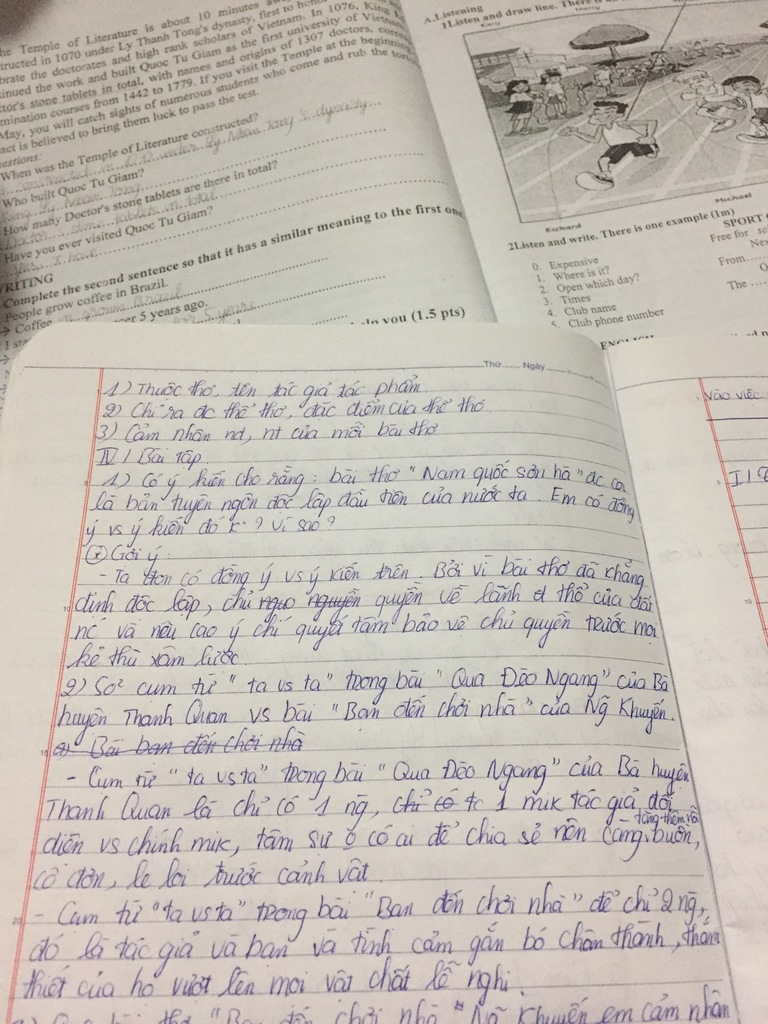 he Temple of Literature is about 10 minutes
tructed in 1070 under Ly Thanh Tong's dynasty, first to hono
brate the doctorates and high rank scholars of Vietnam. In 1076, King L
tinued the work and built Quoc Tu Giam as the first university of Vietnam
tor's stone tablets in total, with names and origins of 1307 doctors,
mination courses from 1442 to 1779. If you visit the Temple at the beginning
May, you will catch sights of numerous students who come and rub the
act is believed to bring them luck to pass the test.
When was the Temple of Literature constructed?
Who built Quoc Tu Giam?
How many Doctor's stone tablets are there in total?
Have you ever visited Quoc Tu Giam?
Yes, I have
RITING
Complete the second sentence so that it has a similar meaning to the first one
People grow coffee in Brazil.
→ Coffee is grown Brazil
5 years ago.
5 years
you (1.5 pts)
A.Listening
1Listen and draw line. There is
Richard
Michael
2Listen and write. There is one example (1m)
SPORT
0. Expensive
1. Where is it?
2. Open which day?
3. Times
4. Club name
5. Club phone number
Free for
From....
The ....
Thứ....... Ngày.......
1) Thuộc thơ, tên tác giả tác phẩm
2) Chỉ ra đc thể thơ, đặc điểm của thể thơ
3) Cảm nhận nd, nt của mỗi bài thơ
IV / Bài tập.
1) Có ý kiến cho rằng: bài thơ "Nam quốc sơn hà" đc coi
là bản tuyên ngôn độc lập đầu tiên của nước ta. Em có đồng
ý vs ý kiến đó k? Vì sao?
* Gợi ý:
- Ta có đồng ý vs ý kiến trên. Bởi vì bài thơ đã khẳng
định độc lập, chủ quyền về lãnh thổ của đất
nc và nêu cao ý chí quyết tâm bảo vệ chủ quyền trước mọi
kẻ thù xâm lược.
2) So² cụm từ "ta vs ta" trong bài "Qua Đèo Ngang" của Bà
huyện Thanh Quan vs bài "Bạn đến chơi nhà" của Ng Khuyến.
a. Bài bạn đến chơi nhà
- Cụm từ "ta vs ta" trong bài "Qua Đèo Ngang" của Bà huyện
Thanh Quan là chỉ có 1 ng, chỉ có tc 1 mik tác giả đối
diện vs chính mik, tâm sự ko có ai để chia sẻ nên càng tăng thêm nỗi buồn,
cô đơn, lẻ loi trước cảnh vật.
- Cụm từ "ta vs ta" trong bài "Bạn đến chơi nhà" để chỉ 2 ng,
đó là tác giả và bạn và tình cảm gắn bó chân thành, thắm
thiết của họ vượt lên mọi vật chất lễ nghi.
bài thơ "Bạn đến chơi nhà" Ng Khuyến em cảm nhận
vào việc